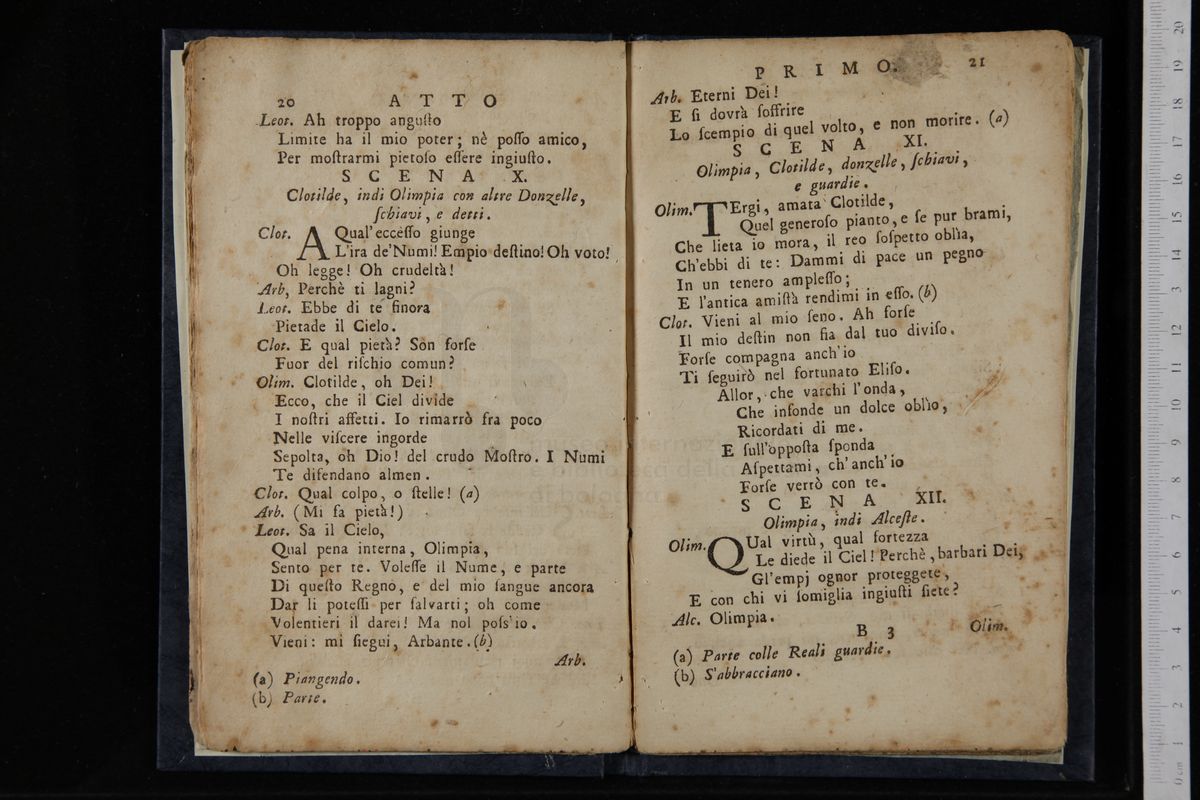 20 ATTO
Leot. Ah troppo anguſto
Limite ha il mio poter; nè poſſo amico,
Per moſtrarmi pietoſo eſſere ingiuſto.
SCENA X.
Clotilde, indi Olimpia con altre Donzelle,
ſchiavi, e detti.
Clot. A Qual'ecceſſo giunge
L'ira de'Numi! Empio deſtino! Oh voto!
Oh legge! Oh crudeltà!
Arb, Perchè ti lagni?
Leot. Ebbe di te finora
Pietade il Cielo.
Clot. E qual pietà? Son forſe
Fuor del riſchio comun?
Olim. Clotilde, oh Dei!
Ecco, che il Ciel divide
I noſtri affetti. Io rimarrò fra poco
Nelle viſcere ingorde
Sepolta, oh Dio! del crudo Moſtro. I Numi
Te difendano almen.
Clot. Qual colpo, o ſtelle! (a)
Arb. (Mi fa pietà!)
Leot. Sa il Cielo,
Qual pena interna, Olimpia,
Sento per te. Voleſſe il Nume, e parte
Di queſto Regno, e del mio ſangue ancora
Dar li poteſſi per ſalvarti; oh come
Volentieri il darei! Ma nol poſs'io.
Vieni: mi ſiegui, Arbante. (b)
Arb.
(a) Piangendo.
(b) Parte.
PRIMO. 21
Arb. Eterni Dei!
E ſi dovrà ſoffrire
Lo ſcempio di quel volto, e non morire. (a)
SCENA XI.
Olimpia, Clotilde, donzelle, ſchiavi,
e guardie.
Olim. TErgi, amata Clotilde,
Quel generoſo pianto, e ſe pur brami,
Che lieta io mora, il reo ſoſpetto oblìa,
Ch'ebbi di te: Dammi di pace un pegno
In un tenero ampleſſo;
E l'antica amiſtà rendimi in eſſo. (b)
Clot. Vieni al mio ſeno. Ah forſe
Il mio deſtin non fia dal tuo diviſo.
Forſe compagna anch'io
Ti ſeguirò nel fortunato Eliſo.
Allor, che varchi l'onda,
Che infonde un dolce oblìo,
Ricordati di me.
E ſull'oppoſta ſponda
Aſpettami, ch'anch'io
Forſe verrò con te.
SCENA XII.
Olimpia, indi Alceſte.
Olim. QUal virtù, qual fortezza
Le diede il Ciel! Perchè, barbari Dei,
Gl'empj ognor proteggete,
E con chi vi ſomiglia ingiuſti ſiete?
Alc. Olimpia.
B 3 Olim.
(a) Parte colle Reali guardie.
(b) S'abbracciano.